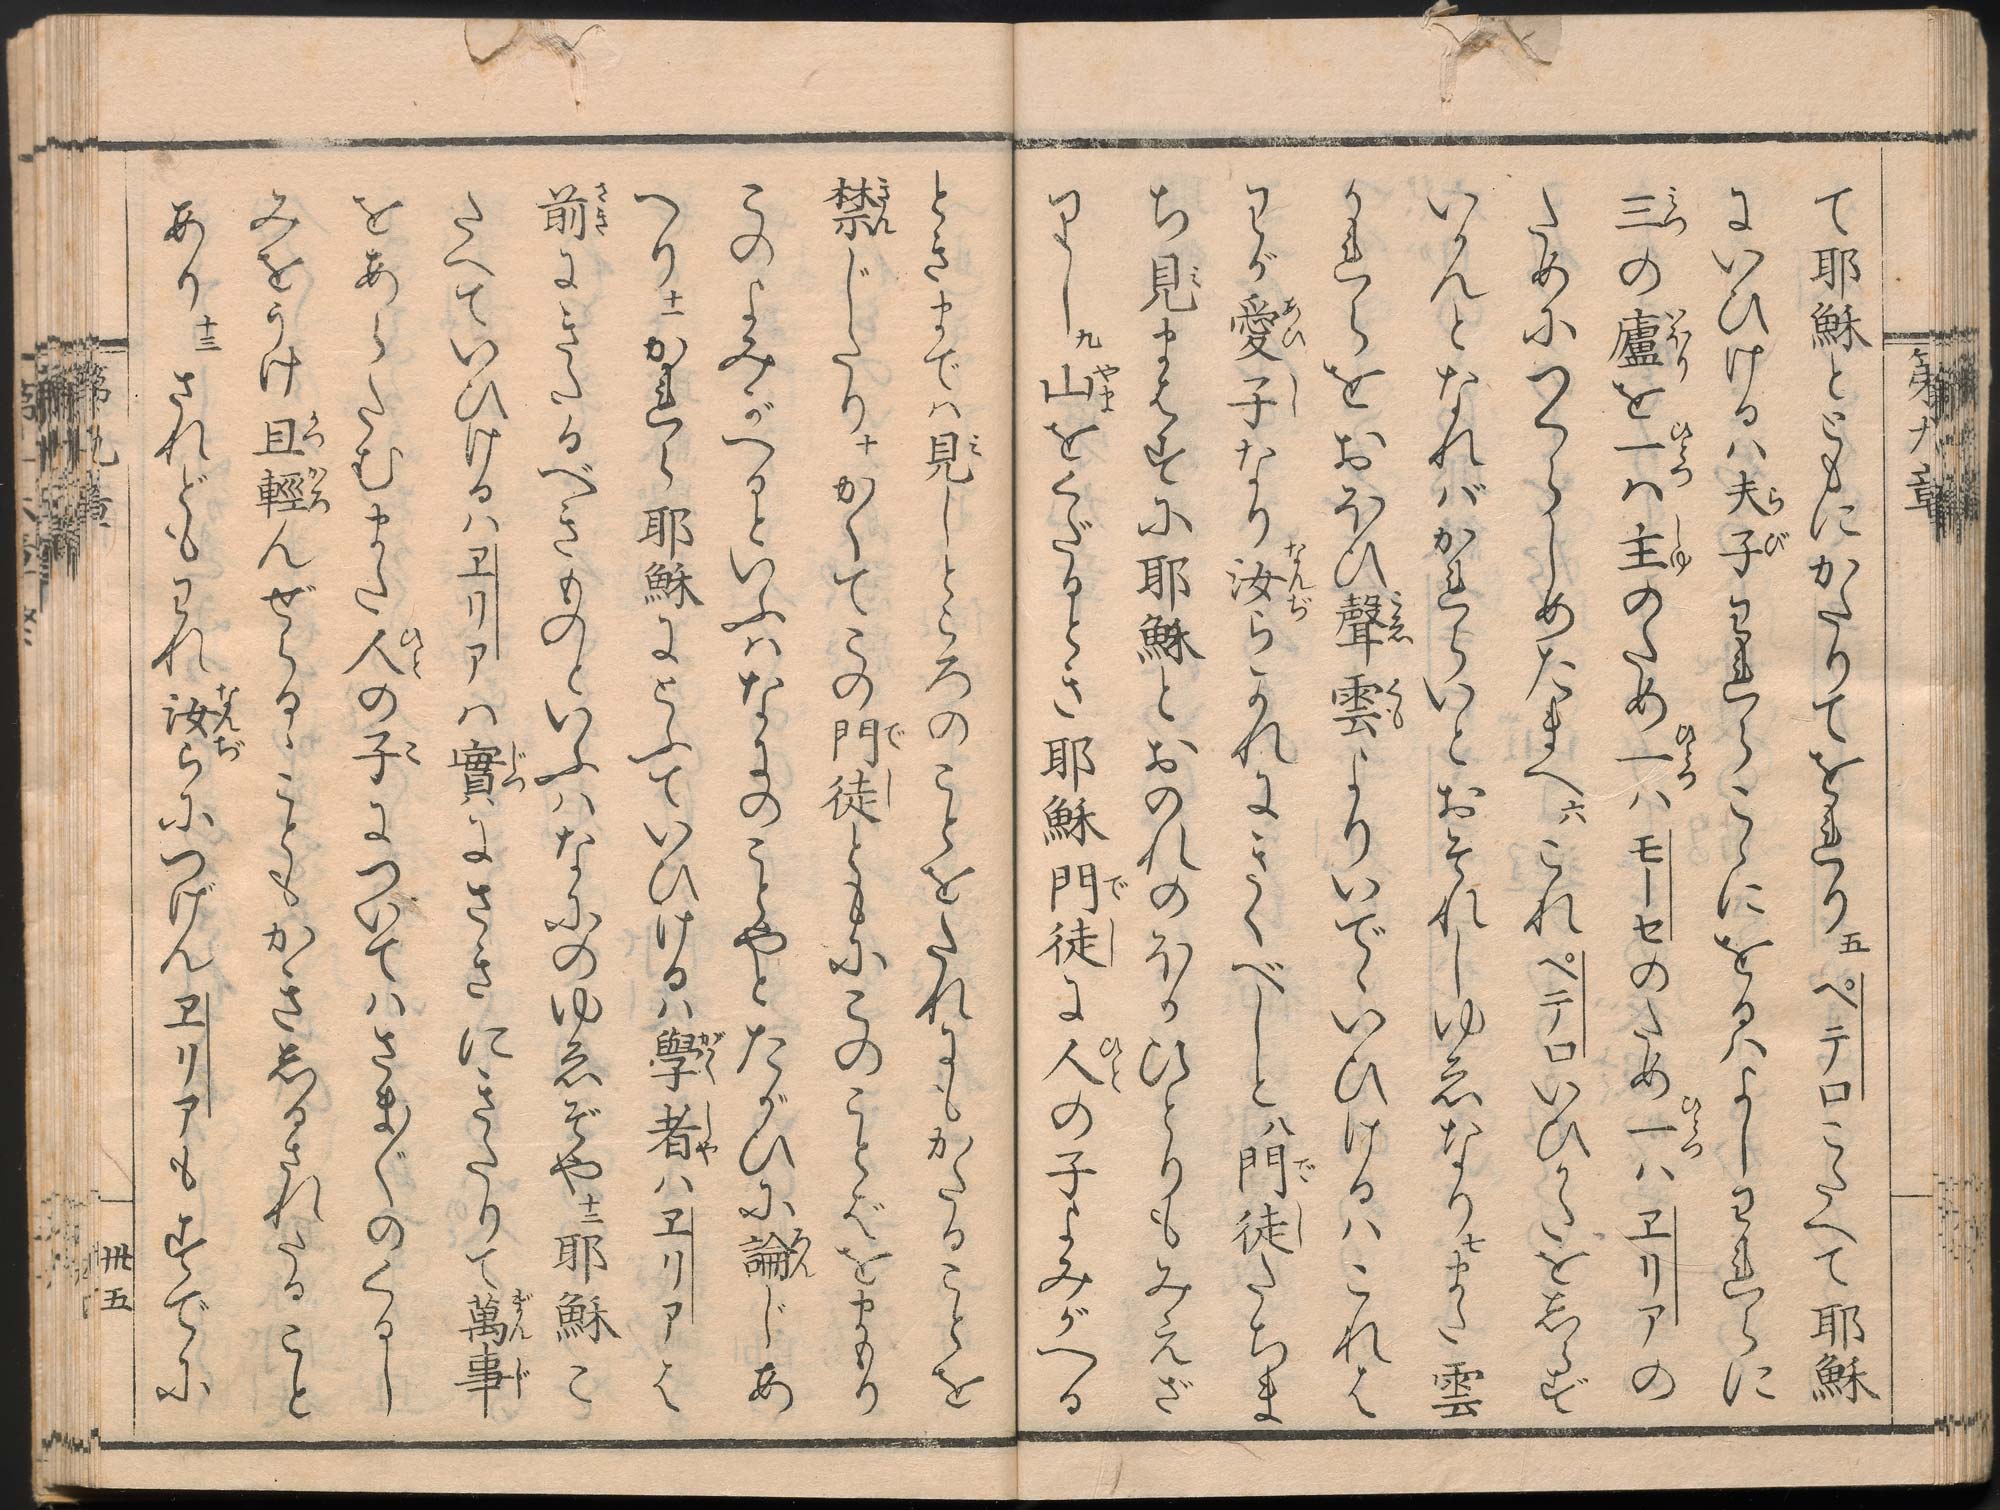 て耶穌とともにかたりてをれり五ペテロこたへて耶穌
にいひけるハ夫子われらこゝにをるハよしわれらに
三の廬を一ハ主のため一ハモーセのため一ハヱリアの
ためにつくらしめたまへ六これペテロいひかたを志らず
いかんとなれバかれらいとおそれしゆゑなり七また雲
かれらをおほひ聲雲よりいでゝいひけるハこれは
わが愛子なり汝らこれにきくべしと八門徒たちま
ち見まはすに耶穌とおのれのほかひとりもみえざ
りし九山をくだるとき耶穌門徒に人の子よみがへる
ときまでハ見しところのことをたれにもかたることを
禁じたり十かくてこの門徒ともにこのことばをまもり
このよみがへるといふハなにのことやとたがひに論じあ
へり十一かれら耶穌にとふていひけるハ學者ハヱリアは
前にきたるべきものといふハなにのゆゑぞや十二耶穌こ
たへていひけるハヱリアハ實にさきにきたりて萬事
をあらたむまた人の子についてハさま〴〵のくるし
みをうけ且輕んぜらるゝこともかき志るされたること
あり十三されどもわれ汝らにつげんヱリアもすでに
第九章
卅五